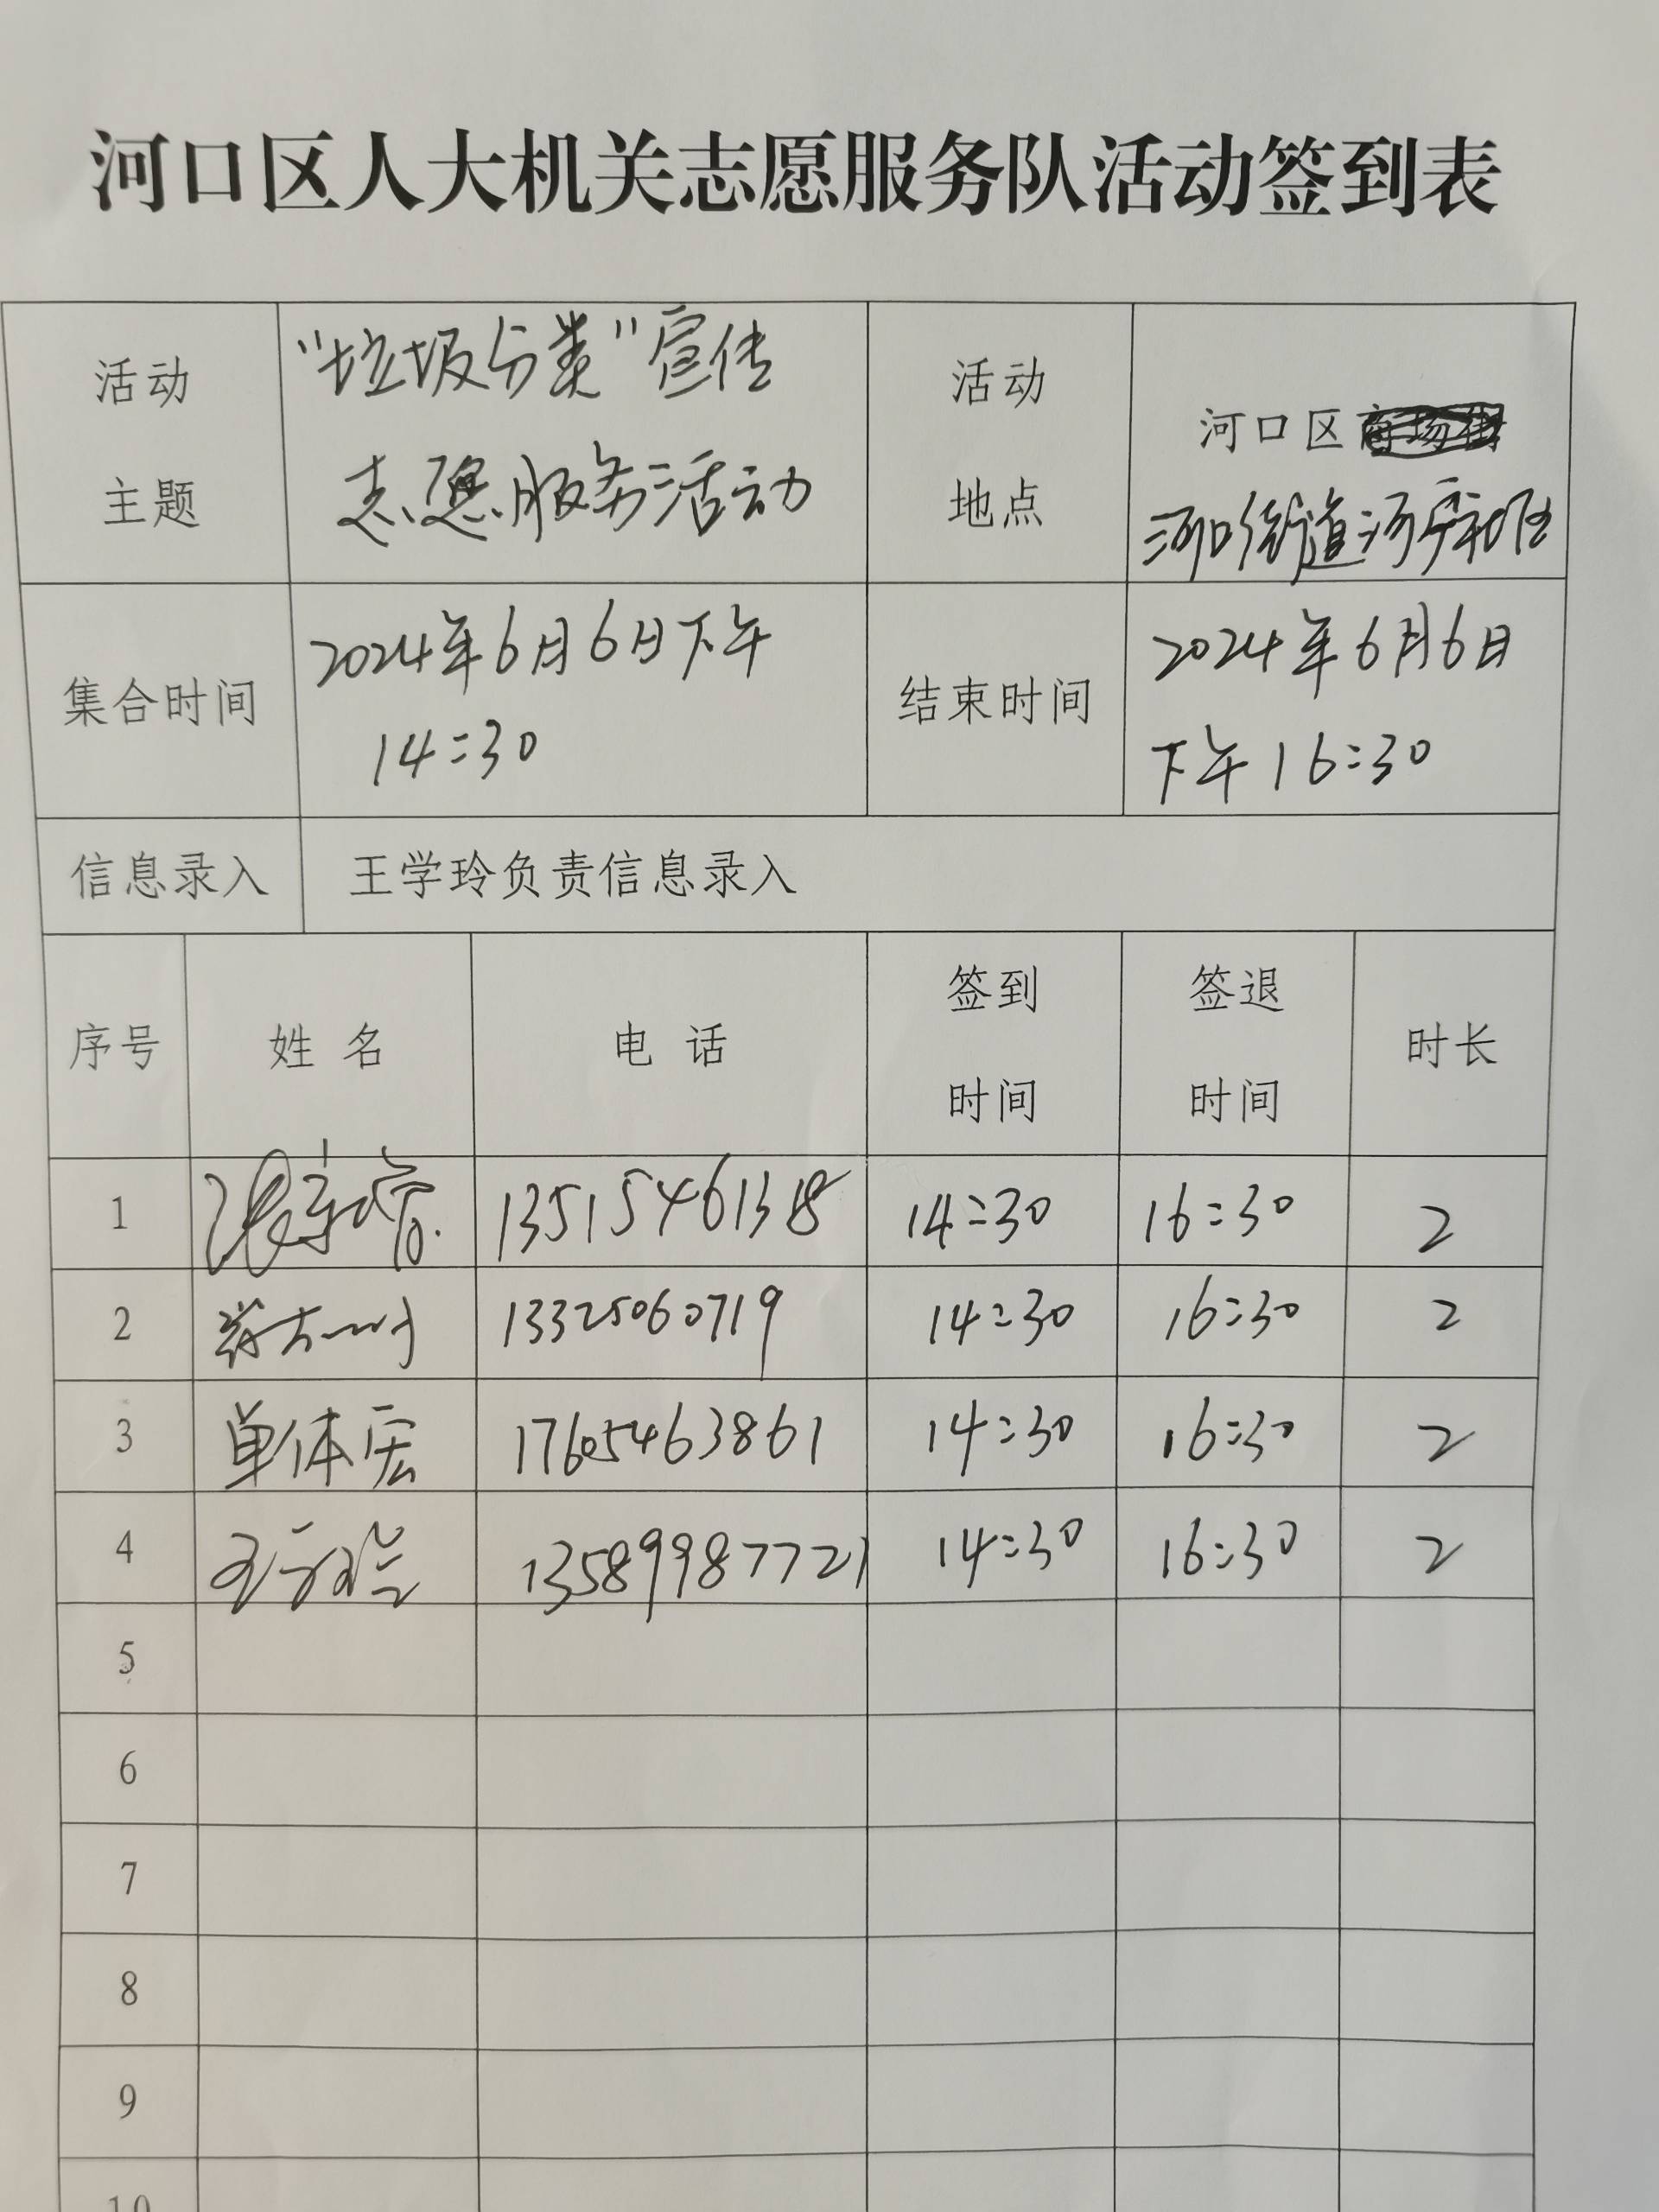 河口区人大机关志愿服务队活动签到表
活动主题 "垃圾分类"宣传
志愿服务活动
活动地点 河口区
河口街道河宁社区
集合时间 2024年6月6日下午
14:30
结束时间 2024年6月6日
下午16:30
信息录入 王学玲负责信息录入
序号 姓名 电话 签到时间 签退时间 时长
1 13515461318 14:30 16:30 2
2 13325060719 14:30 16:30 2
3 单体宏 17605463861 14:30 16:30 2
4 13589987721 14:30 16:30 2
5
6
7
8
9
10